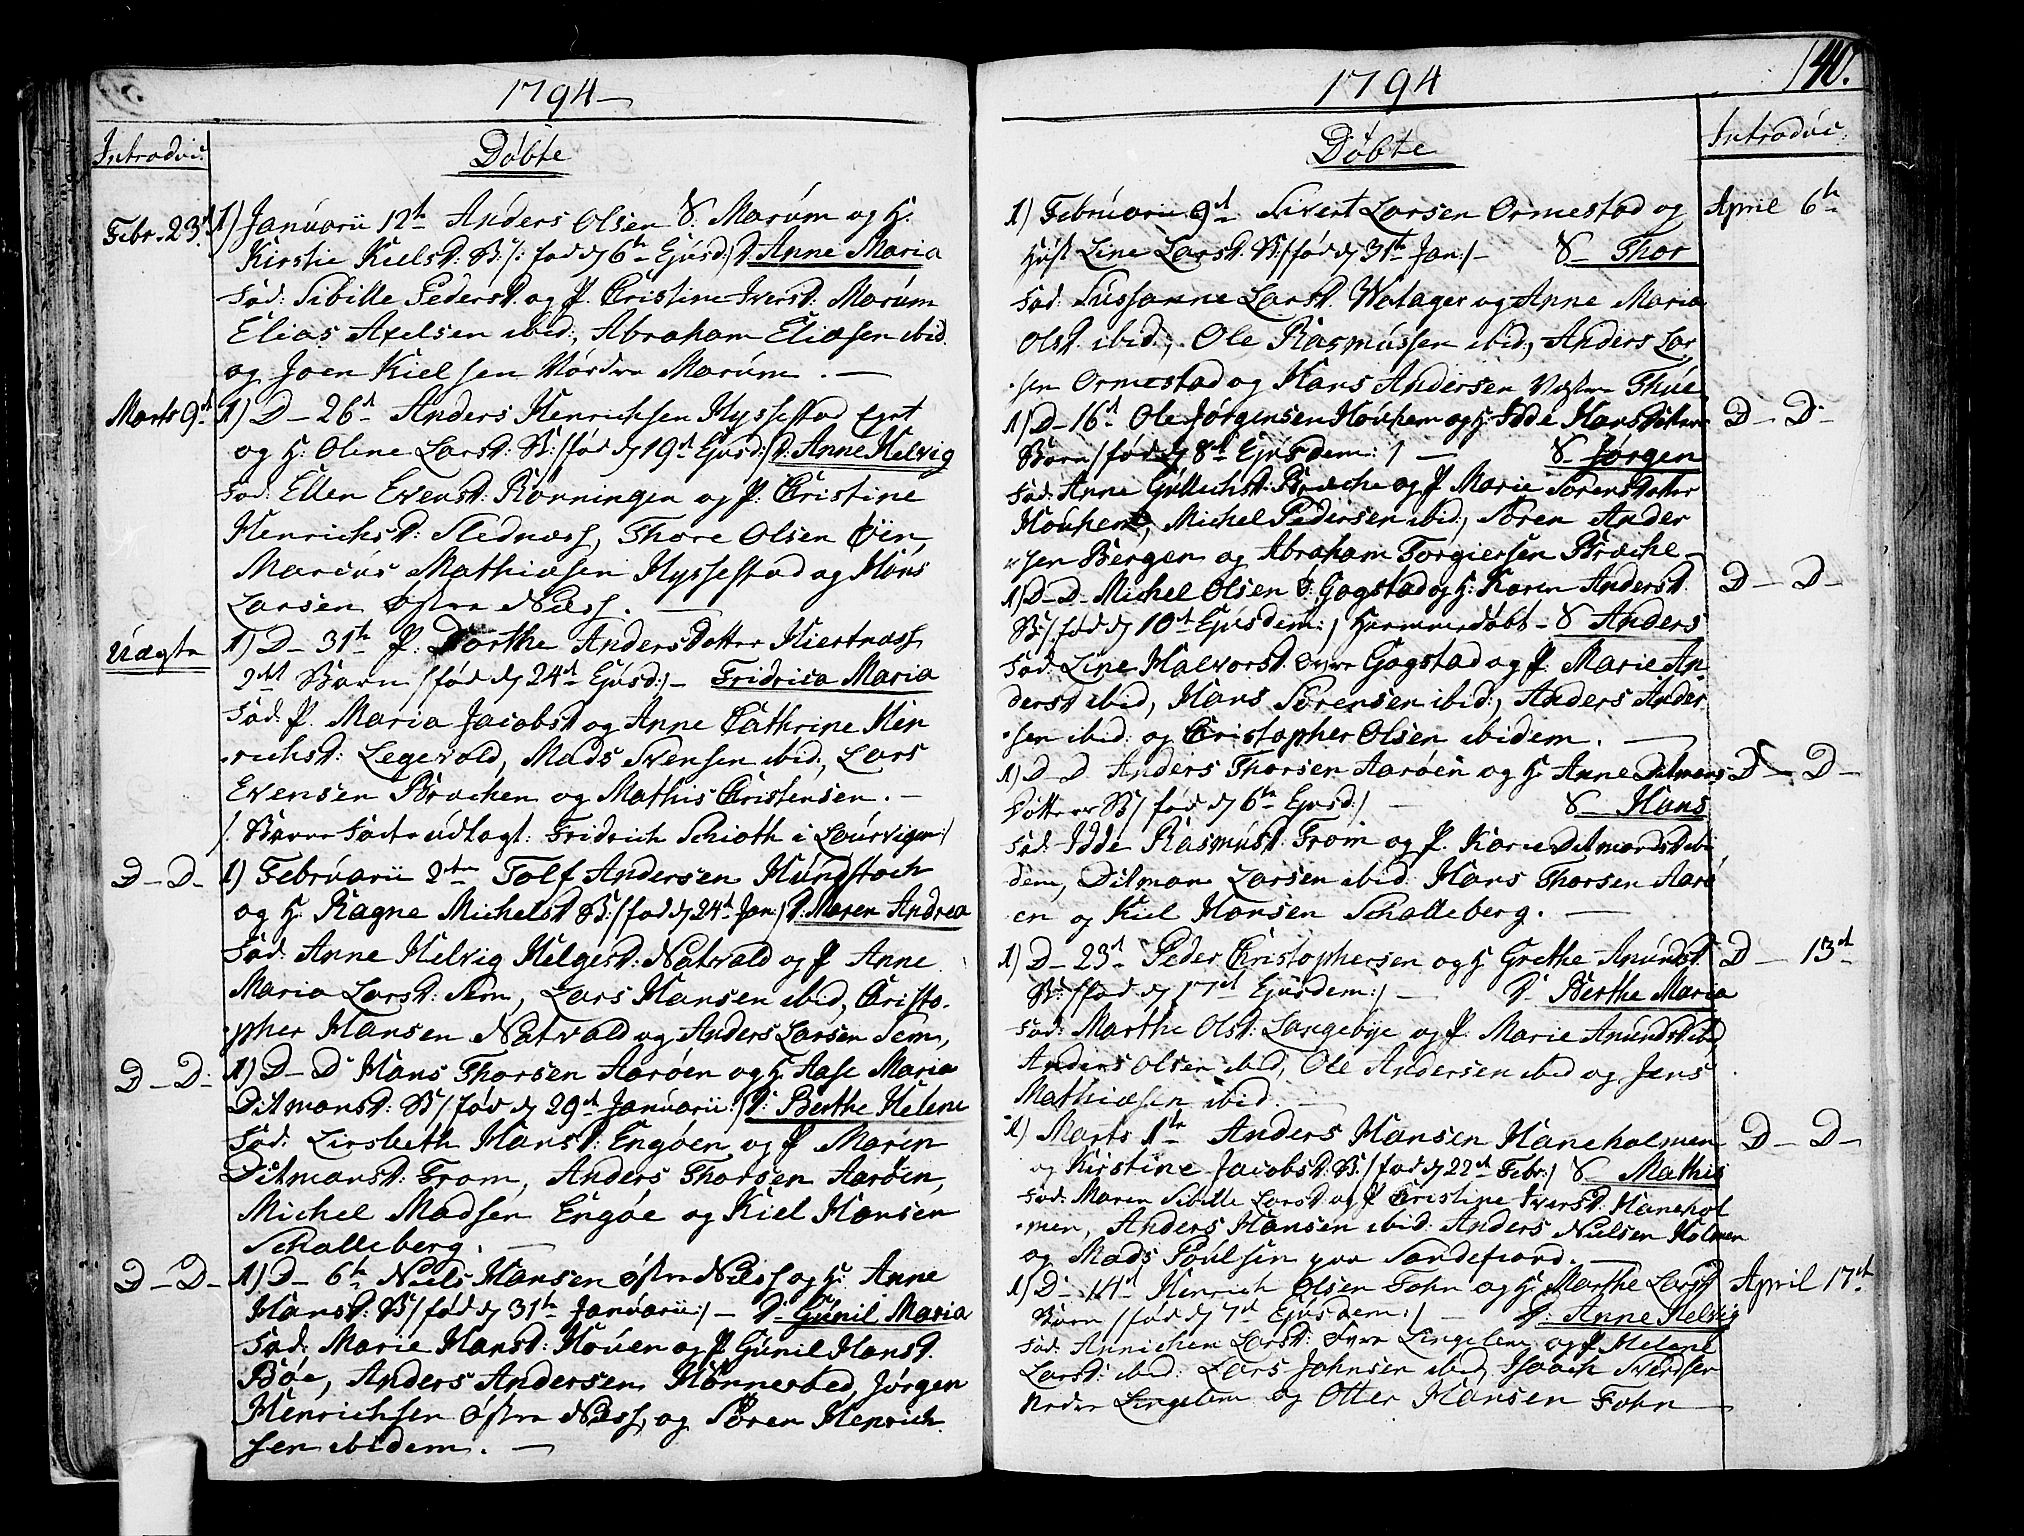 1794
Introduc:
Døbte
Febr. 23d
1) Januarii 12te Anders Olsen S. Marum og H.
Kirstie Kielsd: B: /: fød d 6te Ejusd:/ P. Anne Maria
Fad: Sibille Pedersd og P. Christine Iversd: Marum
Elias Axelsen ibid:, Abraham Eliasen ibid.
og Joen Kielsen Nordre Marum. —
Marts 9d
1) D – 26d Anders Henrichsen Hyssestad
og H: Olene Larsd: B: /fød d 19d Ejusd:/ P: Anne Helvig
Fad: Ellen Evensd: Rønningen og P. Christine
Henrichsd: Slednæss, Thore Olsen Øen,
Marcus Mathiæsen Hyssestad og Hans
Larsen Østre Næss. —
Uægte
1) D – 31te P. Dorthe Anders Datter Hiertnæss
2det Barn /fød d 24d Ejusd:/ – Fridrica Maria
Fad: P. Maria Jacobsd og Anne Cathrine Hen
richsd: Legevold, Mads Svensen ibid:, Lars
Evensen Brachen og Mathis Christensen. –
/: Barne Fader udlagt: Fridrich Schiøth i Lourvigen:/
D – D –
1) Februarii 2den Tolf Andersen Hundstoch
og H: Ragne Michelsd B: /fød d 24d Jan:/ P: Maren Andrea
Fad: Anne Helvig Helgesd: Natvald og P Anne
Maria Larsd: Sem, Lars Hansen ibid, Christo-
pher Hansen Natvald og Anders Larsen Sem,
D – D –
1) D – D Hans Thorsen Aarøen og H. Aase Maria
Ditmansd: B: /fød d 29d Januarii:/ P: Berthe Helene
Fad: Lirsbeth Hansd: Engøen og P Maren
Ditmansd: From, Anders Thorsen Aarøen,
Michel Madsen Engøe og Kiel Hansen
Schalleberg. —
D – D –
1) D – 6te Niels Hansen Østre Næss og H: Anne
Hansd: B: /fød d 31te Januarii:/ – P: Gunil Maria
Fad: Marie Hansd: Houen og P Gunil Hansd.
Bøe, Anders Andersen Hønnested, Jørgen
Henrichsen Østre Næss, og Søren Henrich
sen ibidem. —
1794
140.
Døbte
Introduc:
1) Februarii 9d Sivert Larsen Ormestad og
April 6te
Hust Line Larsd: B: /fød d 31te Jan:/ – S – Thor
Fad: Sussanne Larsd. Watager og Anne Maria
Olsd. ibid:, Ole Rasmussen ibid, Anders Lar
sen Ormestad og Hans Andersen Thue
1) D – 16d Ole Jørgensen Houhem og H: Idde Hans Datters
D – D –
Barn /fød d 8d Ejusdem:/ – S – Jørgen
Fad: Anne Gullichsd: Brache og P Marie Sørens Datter
Houhem, Michel Pedersen ibid, Søren Ander
sen Bergen og Abraham Torgiersen Brache –
1) D – D – Michel Olsen Ø: Gogstad og H: Karen Andersd.
D – D –
B: /fød d 10d Ejusdem:/ Hiemmedøbt – S Anders
Fad: Line Halvorsd. Øvre Gogstad og P. Marie An-
dersd ibid, Hans Sørensen ibid:, Anders Ander
sen ibid: og Christopher Olsen ibidem. —
1) D – D Anders Thorsen Aarøen og H: Anne Ditmans
D – D –
Dotter B: /fød d 6te Ejusd:/ – S – Hans
Fad: Idde Rasmusd: From og P. Karie Ditmansd ibi
dem, Ditman Larsen ibid: Hans Thorsen Aarø
en og Kiel Hansen Schalleberg. —
1) D – 23d Peder Christophersen og H Grethe Anundsd:
D – 13d
B: /fød d 17d Ejusdem:/ – P: Berthe Maria
Fad: Marthe Olsd: Langebye og P. Marie Anundsd ibid
Anders Olsen ibid, Ole Andersen ibid og Jens
Mathiæsen ibid. —
1) Marts 1te Anders Hansen Haneholmen
D – D –
og Kirstine Jacobsd: B: /fød d 22d Febr:/ S – Mathis
Fad: Maren Sibille Larsd og P Christine Iversd: Hanehol
men, Anders Hansen ibid: Anders Nielsen Holmen
og Mads Poulsen paa Sandefiord. —
1) D – 14d Henrich Olsen Fohn og H: Marthe Larsd
April 17d
Barn /fød d 7d Ejusdem:/ – P: Anne Helvig
Fad: Annichen Larsd: Lingelem og P Helene
Larsd: ibid: Lars Johnsen ibid, Isaach Svendsen
Nedre Lingelem og Otter Hansen Fohn —